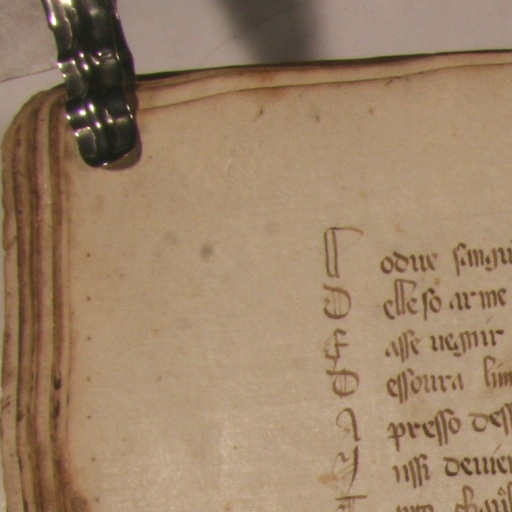 P odue sangu
D elle so arme
F asse uegnir
D essoura lim
A presso dess
N issi deuien